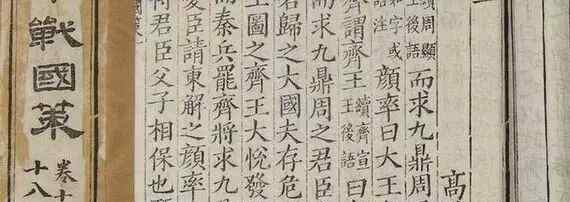 高
續周顯王後語而求九鼎周
字或語注顏率曰大王
齊謂齊王續齊宣王後語曰
而求九鼎周之君臣
君歸之大國夫存危
王圖之齊王大悅發
而秦兵罷齊將求九
臣請東解之顏率
君臣父子相保也
戰國策
卷十
十八